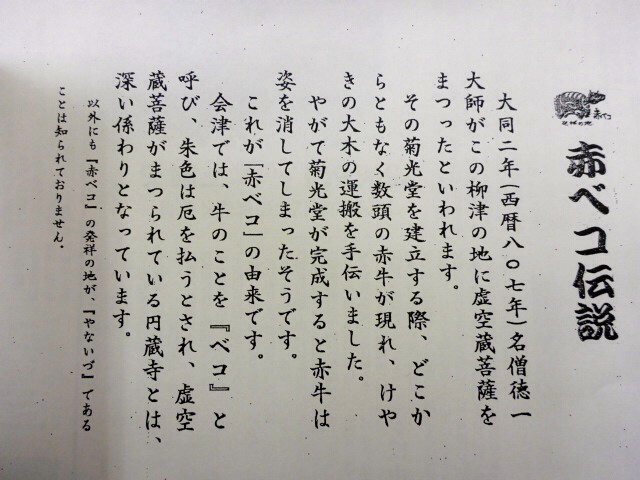 赤ベコ伝説
大同二年(西暦八〇七年)名僧徳一
大師がこの柳津の地に虚空蔵菩薩を
まつったといわれます。
その菊光堂を建立する際、どこか
らともなく数頭の赤牛が現れ、けや
きの大木の運搬を手伝いました。
やがて菊光堂が完成すると赤牛は
姿を消してしまったそうです。
これが「赤ベコ」の由来です。
会津では、牛のことを『ベコ』と
呼び、朱色は厄を払うとされ、虚空
蔵菩薩がまつられている円蔵寺とは、
深い係わりとなっています。
以外にも『赤ベコ』の発祥の地が、『やないづ』である
ことは知られておりません。